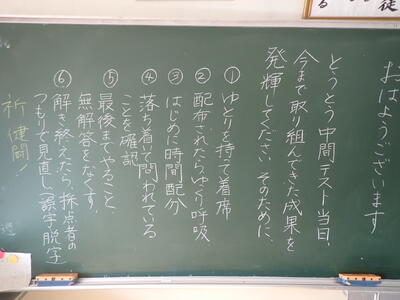 おはようございます
とうとう中間テスト当日、
今まで取り組んできた成果を
発揮してください。そのために、
①ゆとりを持て着席
②配布されたらゆっくり呼吸
③はじめに時間配分
④落ち着いて問われている
ことを確認
⑤最後までやること
無解答をなくす、
⑥解き終えたら、採点者の
つもりで見直し(誤字脱字
祈健闘!